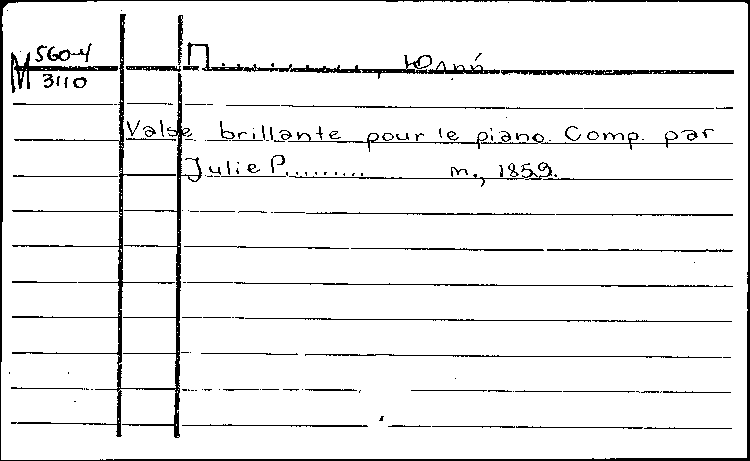 М 560-4
3110
П.............., Юлий
Valse brillante pour le piano. Comp. par
Julie P............. m., 1859.